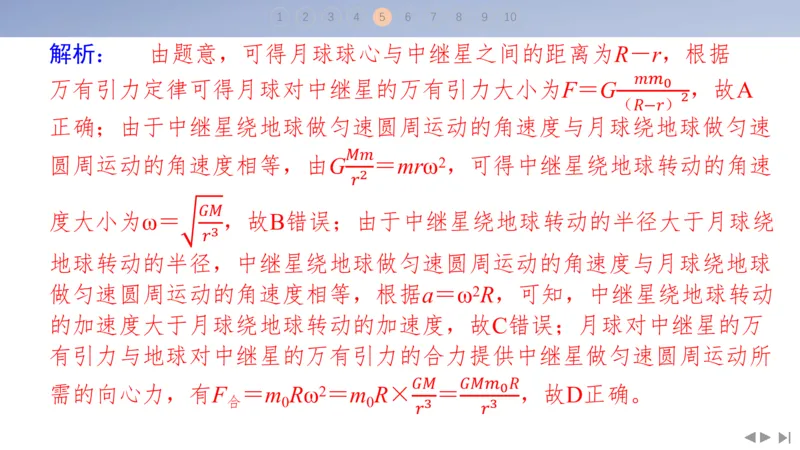 1 2 3 4 5 6 7 8 9 10
解析： 由题意，可得月球球心与中继星之间的距离为R－r，根据
万有引力定律可得月球对中继星的万有引力大小为F＝G\frac{mm_0}{（R−r）^2}，故A
正确；由于中继星绕地球做匀速圆周运动的角速度与月球绕地球做匀速
圆周运动的角速度相等，由G\frac{Mm}{r^2}＝mrω²，可得中继星绕地球转动的角速
度大小为ω＝\sqrt{\frac{GM}{r^3}}，故B错误；由于中继星绕地球转动的半径大于月球绕
地球转动的半径，中继星绕地球做匀速圆周运动的角速度与月球绕地球
做匀速圆周运动的角速度相等，根据a＝ω²R，可知，中继星绕地球转动
的加速度大于月球绕地球转动的加速度，故C错误；月球对中继星的万
有引力与地球对中继星的万有引力的合力提供中继星做匀速圆周运动所
需的向心力，有F合＝m₀Rω²＝m₀R×\frac{GM}{r^3}＝\frac{GMm_0R}{r^3}，故D正确。